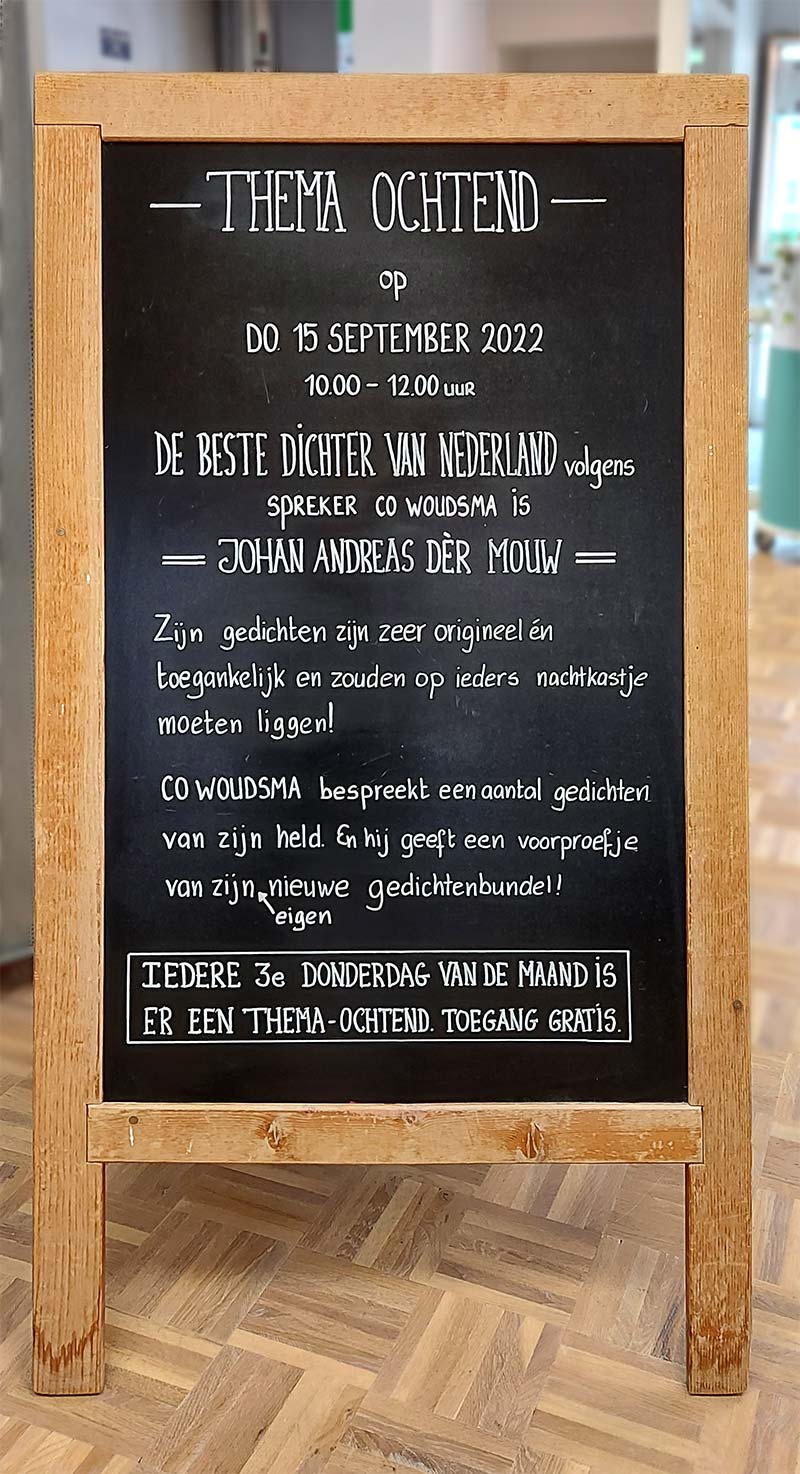 — THEMA OCHTEND —
op
DO. 15 SEPTEMBER 2022
10.00 - 12.00 UUR
DE BESTE DICHTER VAN NEDERLAND volgens
SPREKER CO WOUDSMA IS
= JOHAN ANDREAS DÈR MOUW =
Zijn gedichten zijn zeer origineel én
toegankelijk en zouden op ieders nachtkastje
moeten liggen!
CO WOUDSMA bespreekt een aantal gedichten
van zijn held. En hij geeft een voorproefje
van zijn nieuwe gedichtenbundel!
eigen
IEDERE 3e DONDERDAG VAN DE MAAND IS
ER EEN THEMA-OCHTEND. TOEGANG GRATIS.